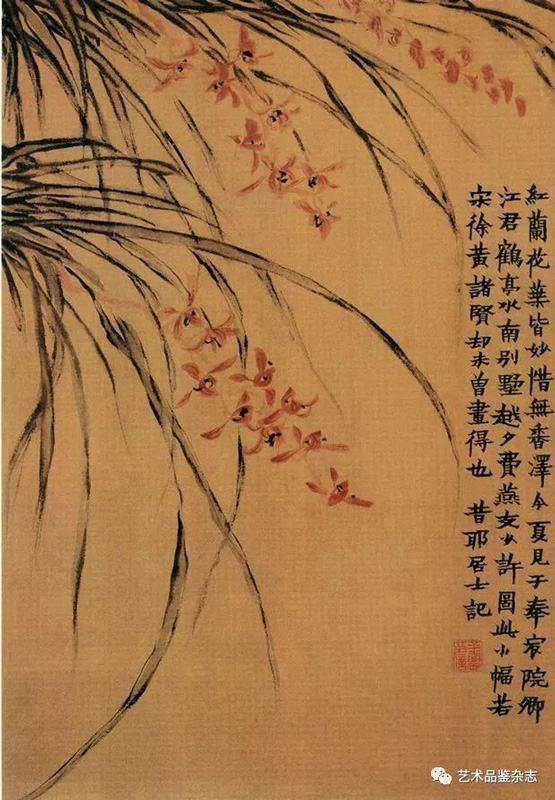 紅蘭花葉皆妙惜無香澤今夏見于奉宸院卿
江君鶴亭水南別墅越夕費燕支少許圖此小幅若
宋徐黃諸賢却未曾畫得也 昔耶居士記
艺术品鉴杂志